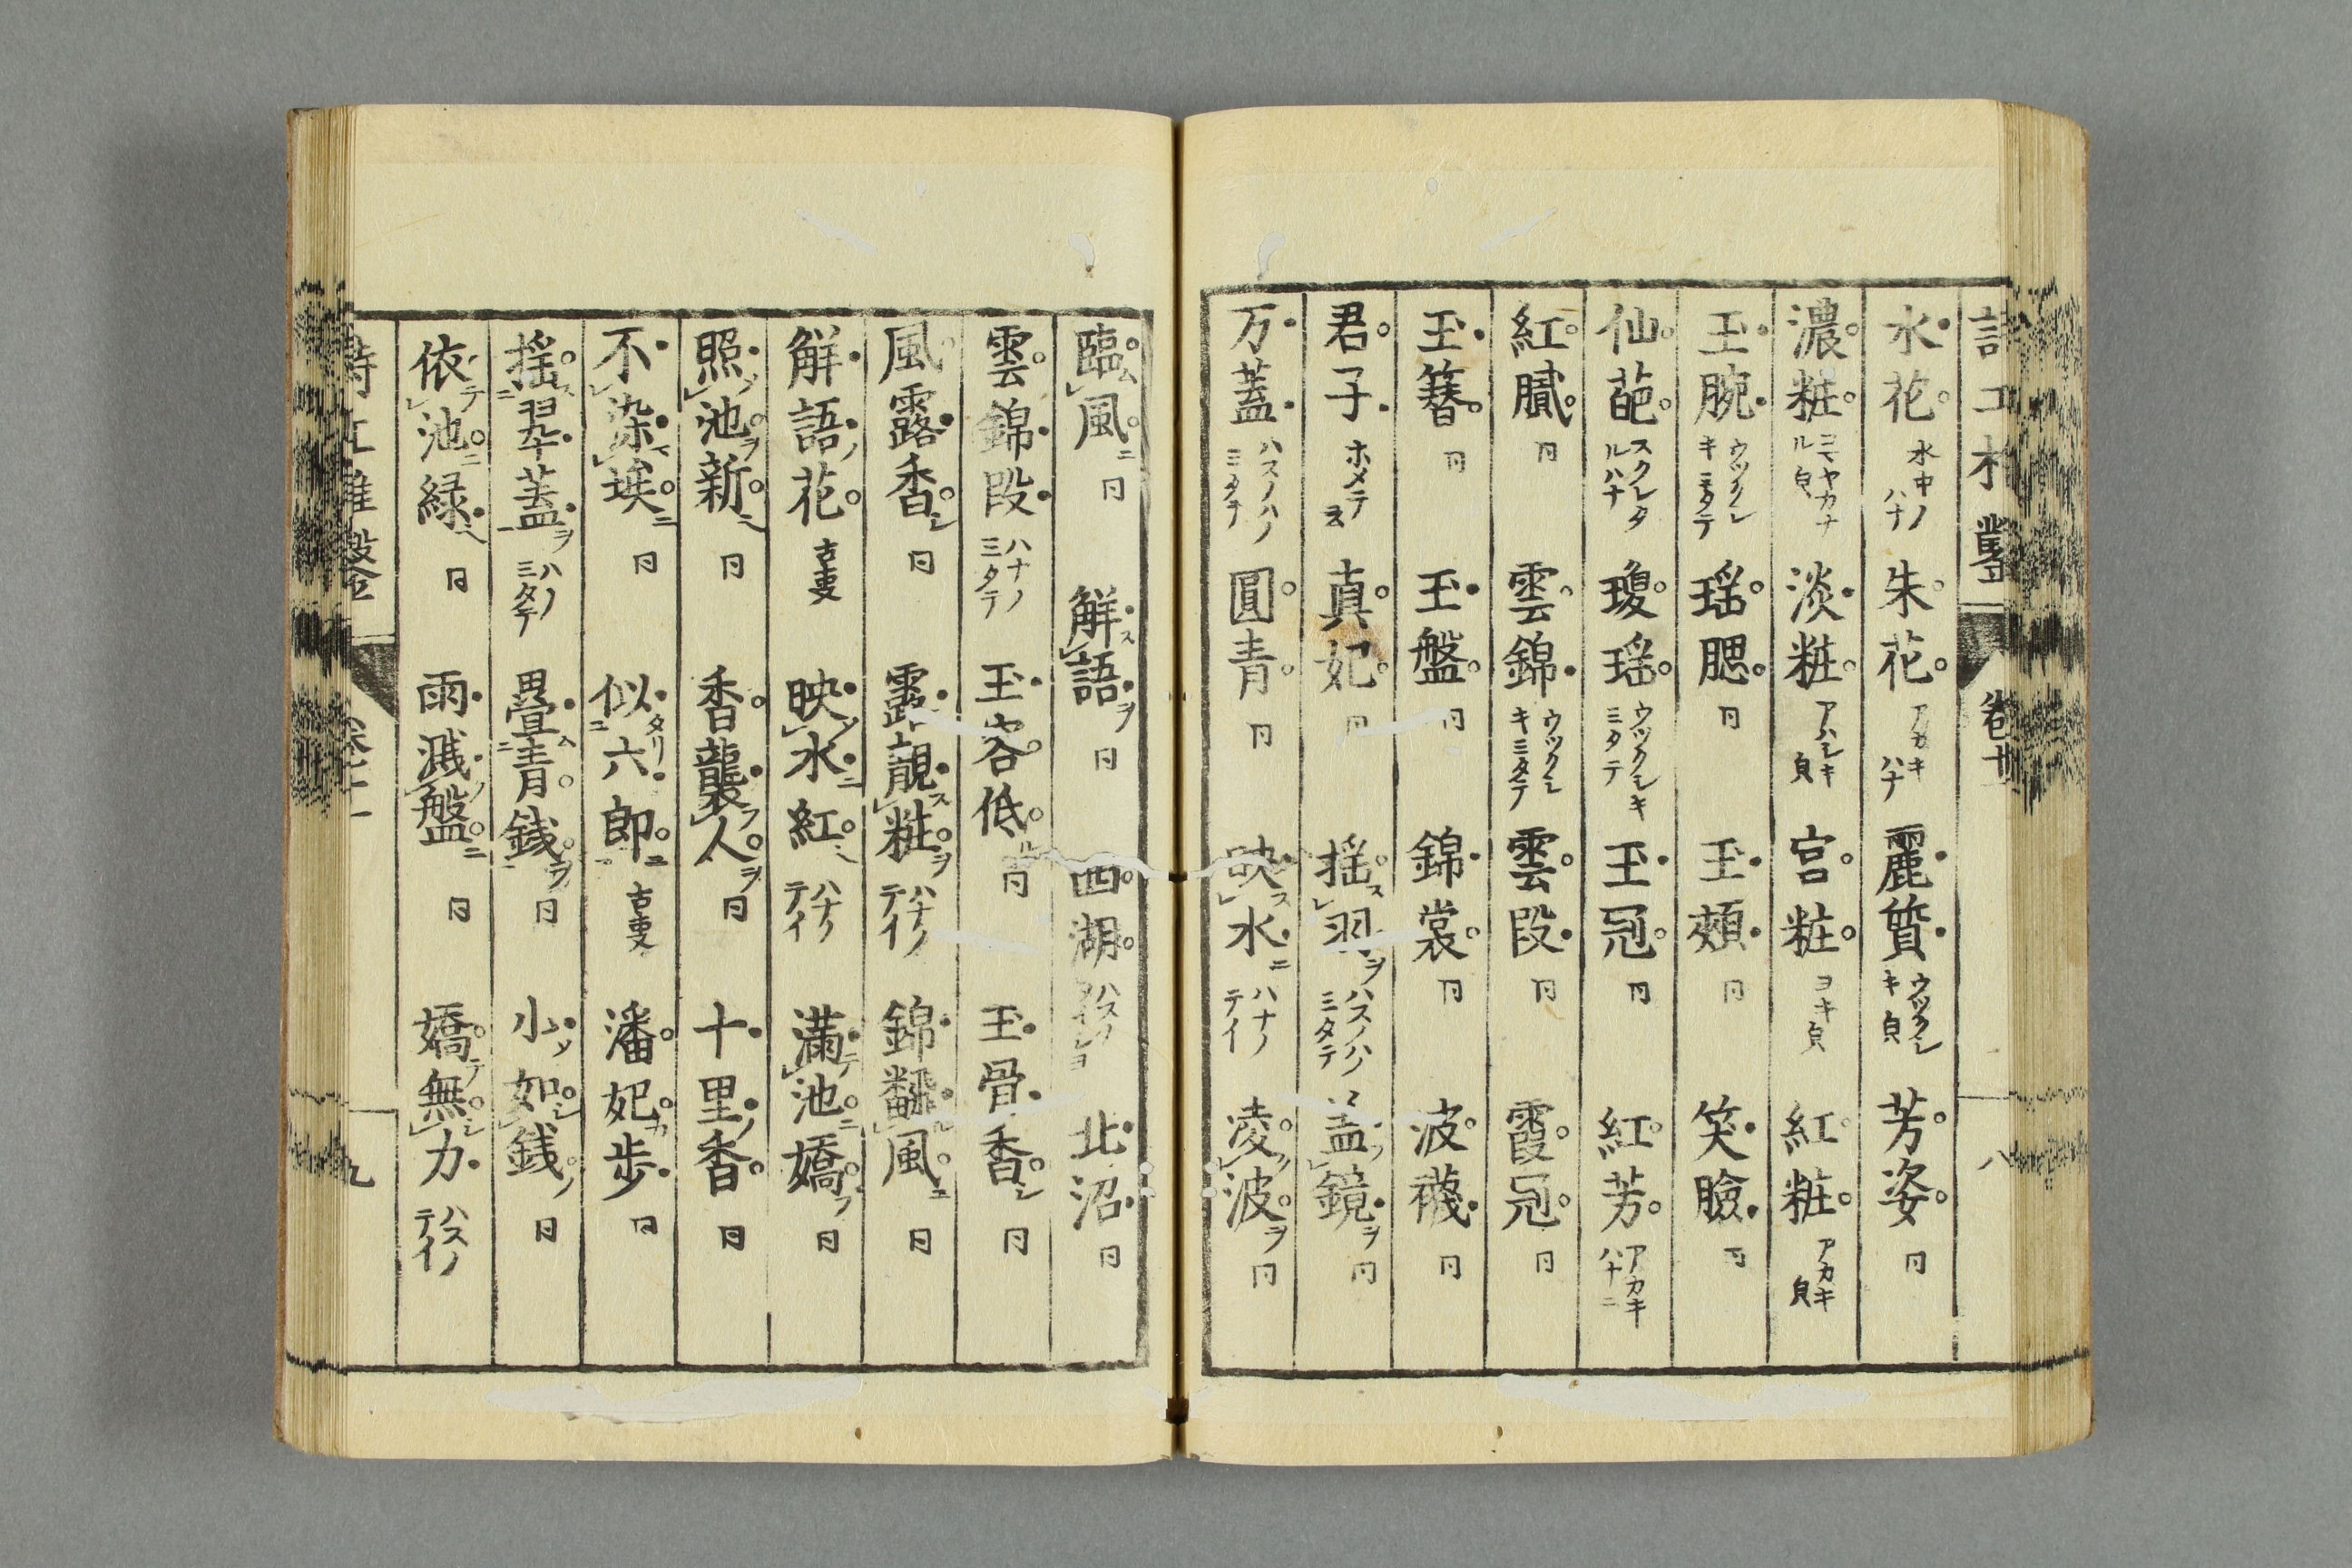 水花 水中ノハナ 朱花 アカキハナ 麗質 ウツクシキ㒵 芳姿 同
濃粧 コマヤカナル㒵 淡粧 アハシキ㒵 宮粧 ヨキ㒵 紅粧 アカキ㒵
玉腕 ウツクシキミタテ 瑶腮 同 玉頬 同 笑臉 同
仙葩 スクレタルハナ 瓊瑶 ウツクシキミタテ 玉冠 同 紅芳 アカキハナニ
紅膩 同 雲錦 ウツクシキミタテ 雲段 同 霞冠 同
玉簪 同 玉盤 同 錦裳 同 波襪 同
君子 ホメテ云 真妃 同 揺レ羽ヲ ハスノハノミタテ 盖レ鏡ヲ 同
万蓋 ハスノハノミタテ 圓青 同 映スレ水ニ ハナノテイ 凌レ波ヲ 同
卷十 八
臨ムレ風ニ 同 解スレ語ヲ 同 西湖 北沼 同
雲錦段 ハナノミタテ 玉容低 同 玉骨香シ 同
風露香シ 同 露靚スレ粧ヲ ハナノテイ 錦翻ルレ風ニ 同
解語ノ花 古事 映レ水ニ紅 ハナノテイ 満テレ池ニ嬌 同
照レ池ヲ新 同 香襲フレ人ヲ 同 十里ノ香 同
不レ染レ埃ニ 同 似タリ二六郎ニ一 古事 潘妃カ歩 同
揺ス二翠蓋ヲ一 ハノミタテ 畳ム二青銭ヲ一 同 小ソ如シレ銭ノ 同
依テレ池ニ緑 同 雨濺レ盤ニ 同 嬌テ無シレ力 ハスノテイ
九